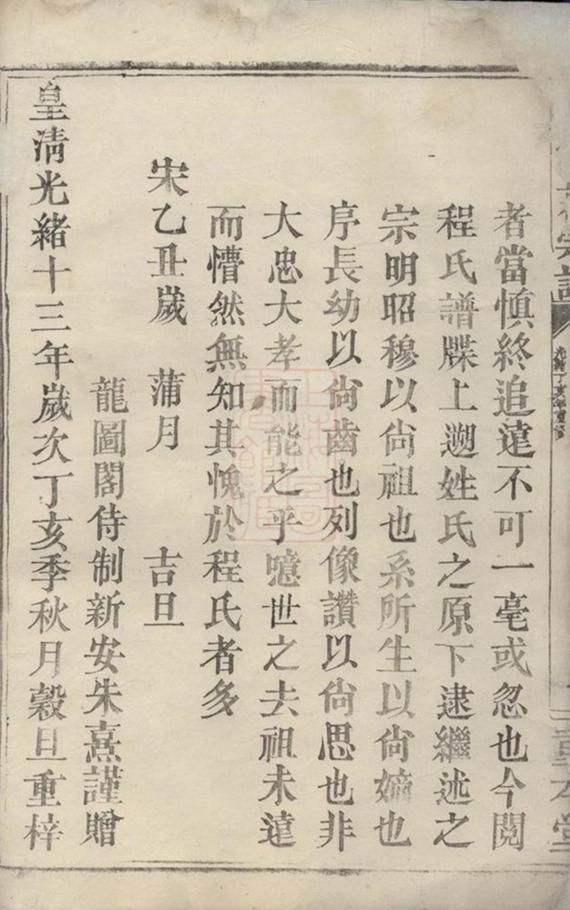 者當慎終追遠不可一毫或忽也今閱
程氏譜牒上遡姓氏之原下逮繼述之
宗明昭穆以尙祖也系所生以尙嫡也
序長幼以尙齒也列像讚以尙思也非
大忠大孝而能之乎噫世之去祖未遠
而懵然無知其愧於程氏者多
宋乙丑歲 蒲月 吉旦
龍圖閣侍制新安朱熹謹贈
皇清光緒十三年歲次丁亥季秋月穀旦重梓